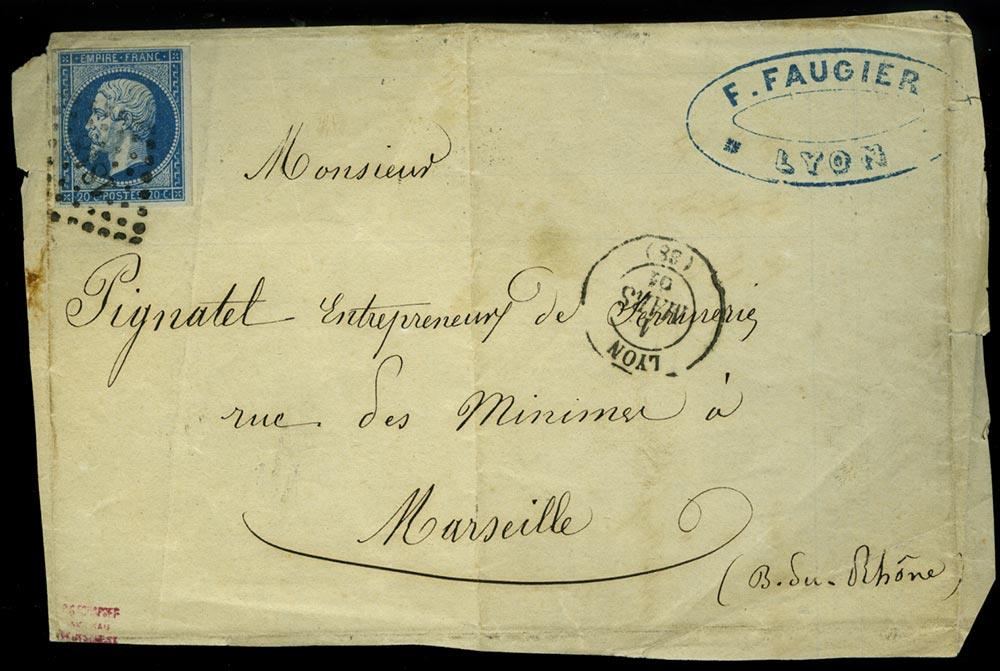 EMPIRE FRANC
20 C POSTES 20 C
F. FAUGIER
LYON
Monsieur
Pignatel Entrepreneur de Ferrunerie
rue des Minimes à
Marseille
(B. du. Rhône)
(68)
MARS
LYON